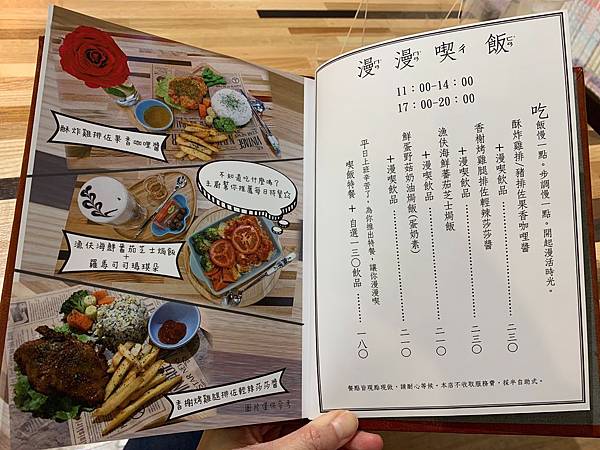 酥炸雞排佐果香咖哩醬
不知道吃什麼嗎?
主廚幫你推薦每日特餐☆
漁伕海鮮蕃茄芝士焗飯
+
羅馬可可瑪琪朵
香榭烤雞腿排佐輕辣莎莎醬
圖片僅供參考
漫漫喫飯
ㄇㄢˋ ㄇㄢˋ ㄔ ㄈㄢˋ
11:00-14:00
17:00-20:00
吃飯慢一點。步調慢一點。開起漫活時光。
酥炸雞排/豬排佐果香咖哩醬
+漫喫飲品………二三〇
香榭烤雞腿排佐輕辣莎莎醬
+漫喫飲品………二三〇
漁伕海鮮蕃茄芝士焗飯
+漫喫飲品………二一〇
鮮蛋野菇奶油焗飯(蛋奶素)
+漫喫飲品………二一〇
平日上班辛苦了,為你推出特餐,讓你漫漫喫
喫飯特餐 + 自選一三〇飲品……一八〇
餐點皆現點現做,請耐心等候。本店不收取服務費,採半自助式。